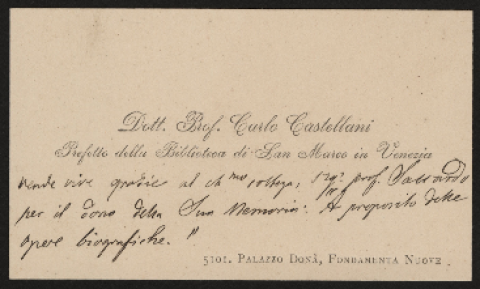 Dott. Prof. Carlo Castellani
Prefetto della Biblioteca di San Marco in Venezia
rende vive grazie al ch.mo collega, prof. Saccardo
per il dono della Sua Memoria: A proposito delle
opere biografiche."
5101. Palazzo Donà, Fondamenta Nuove